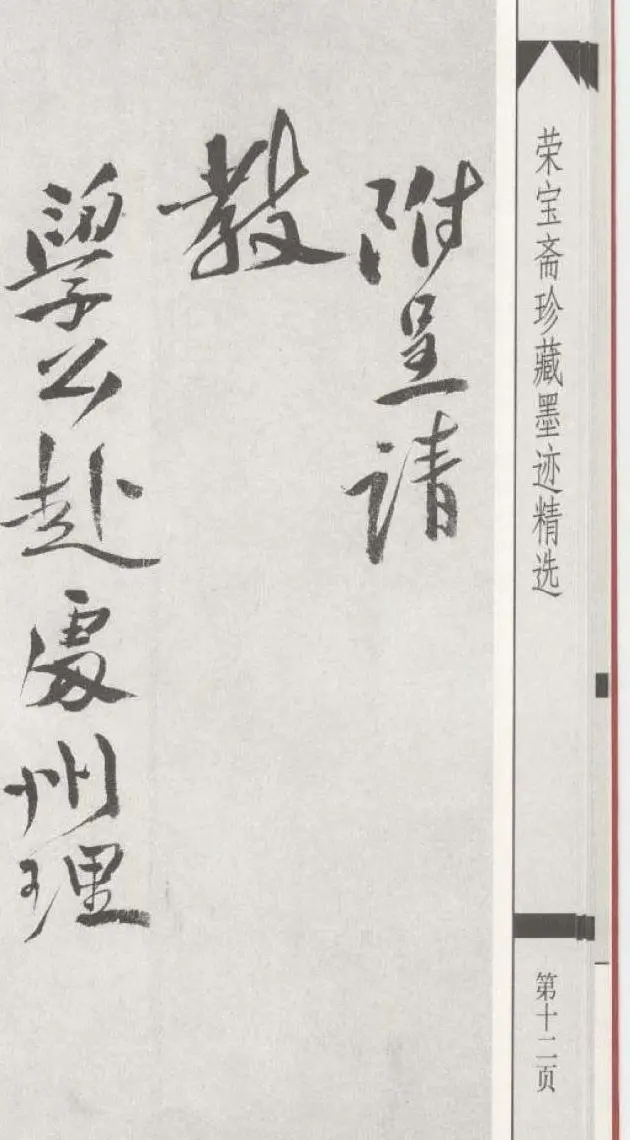 荣宝斋珍藏墨迹精选
第十二页
附呈请
教
學公赴處州理